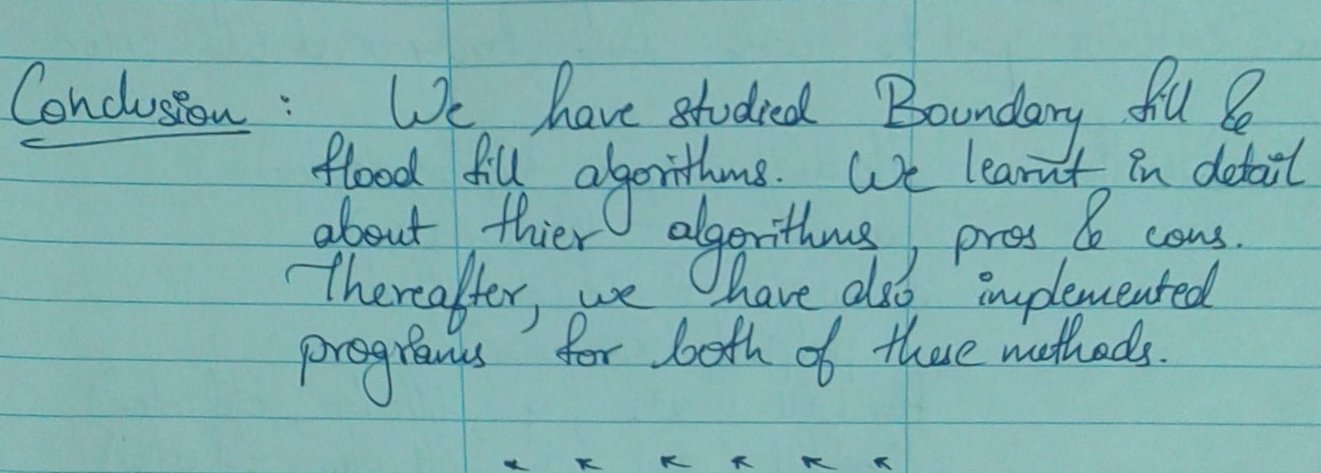 Conclusion : We have studied Boundary fill &
flood fill algorithms. We learnt in detail
about thier algorithms, pros & cons.
Thereafter, we have also implemented
programs for both of these methods.
* * * * * *